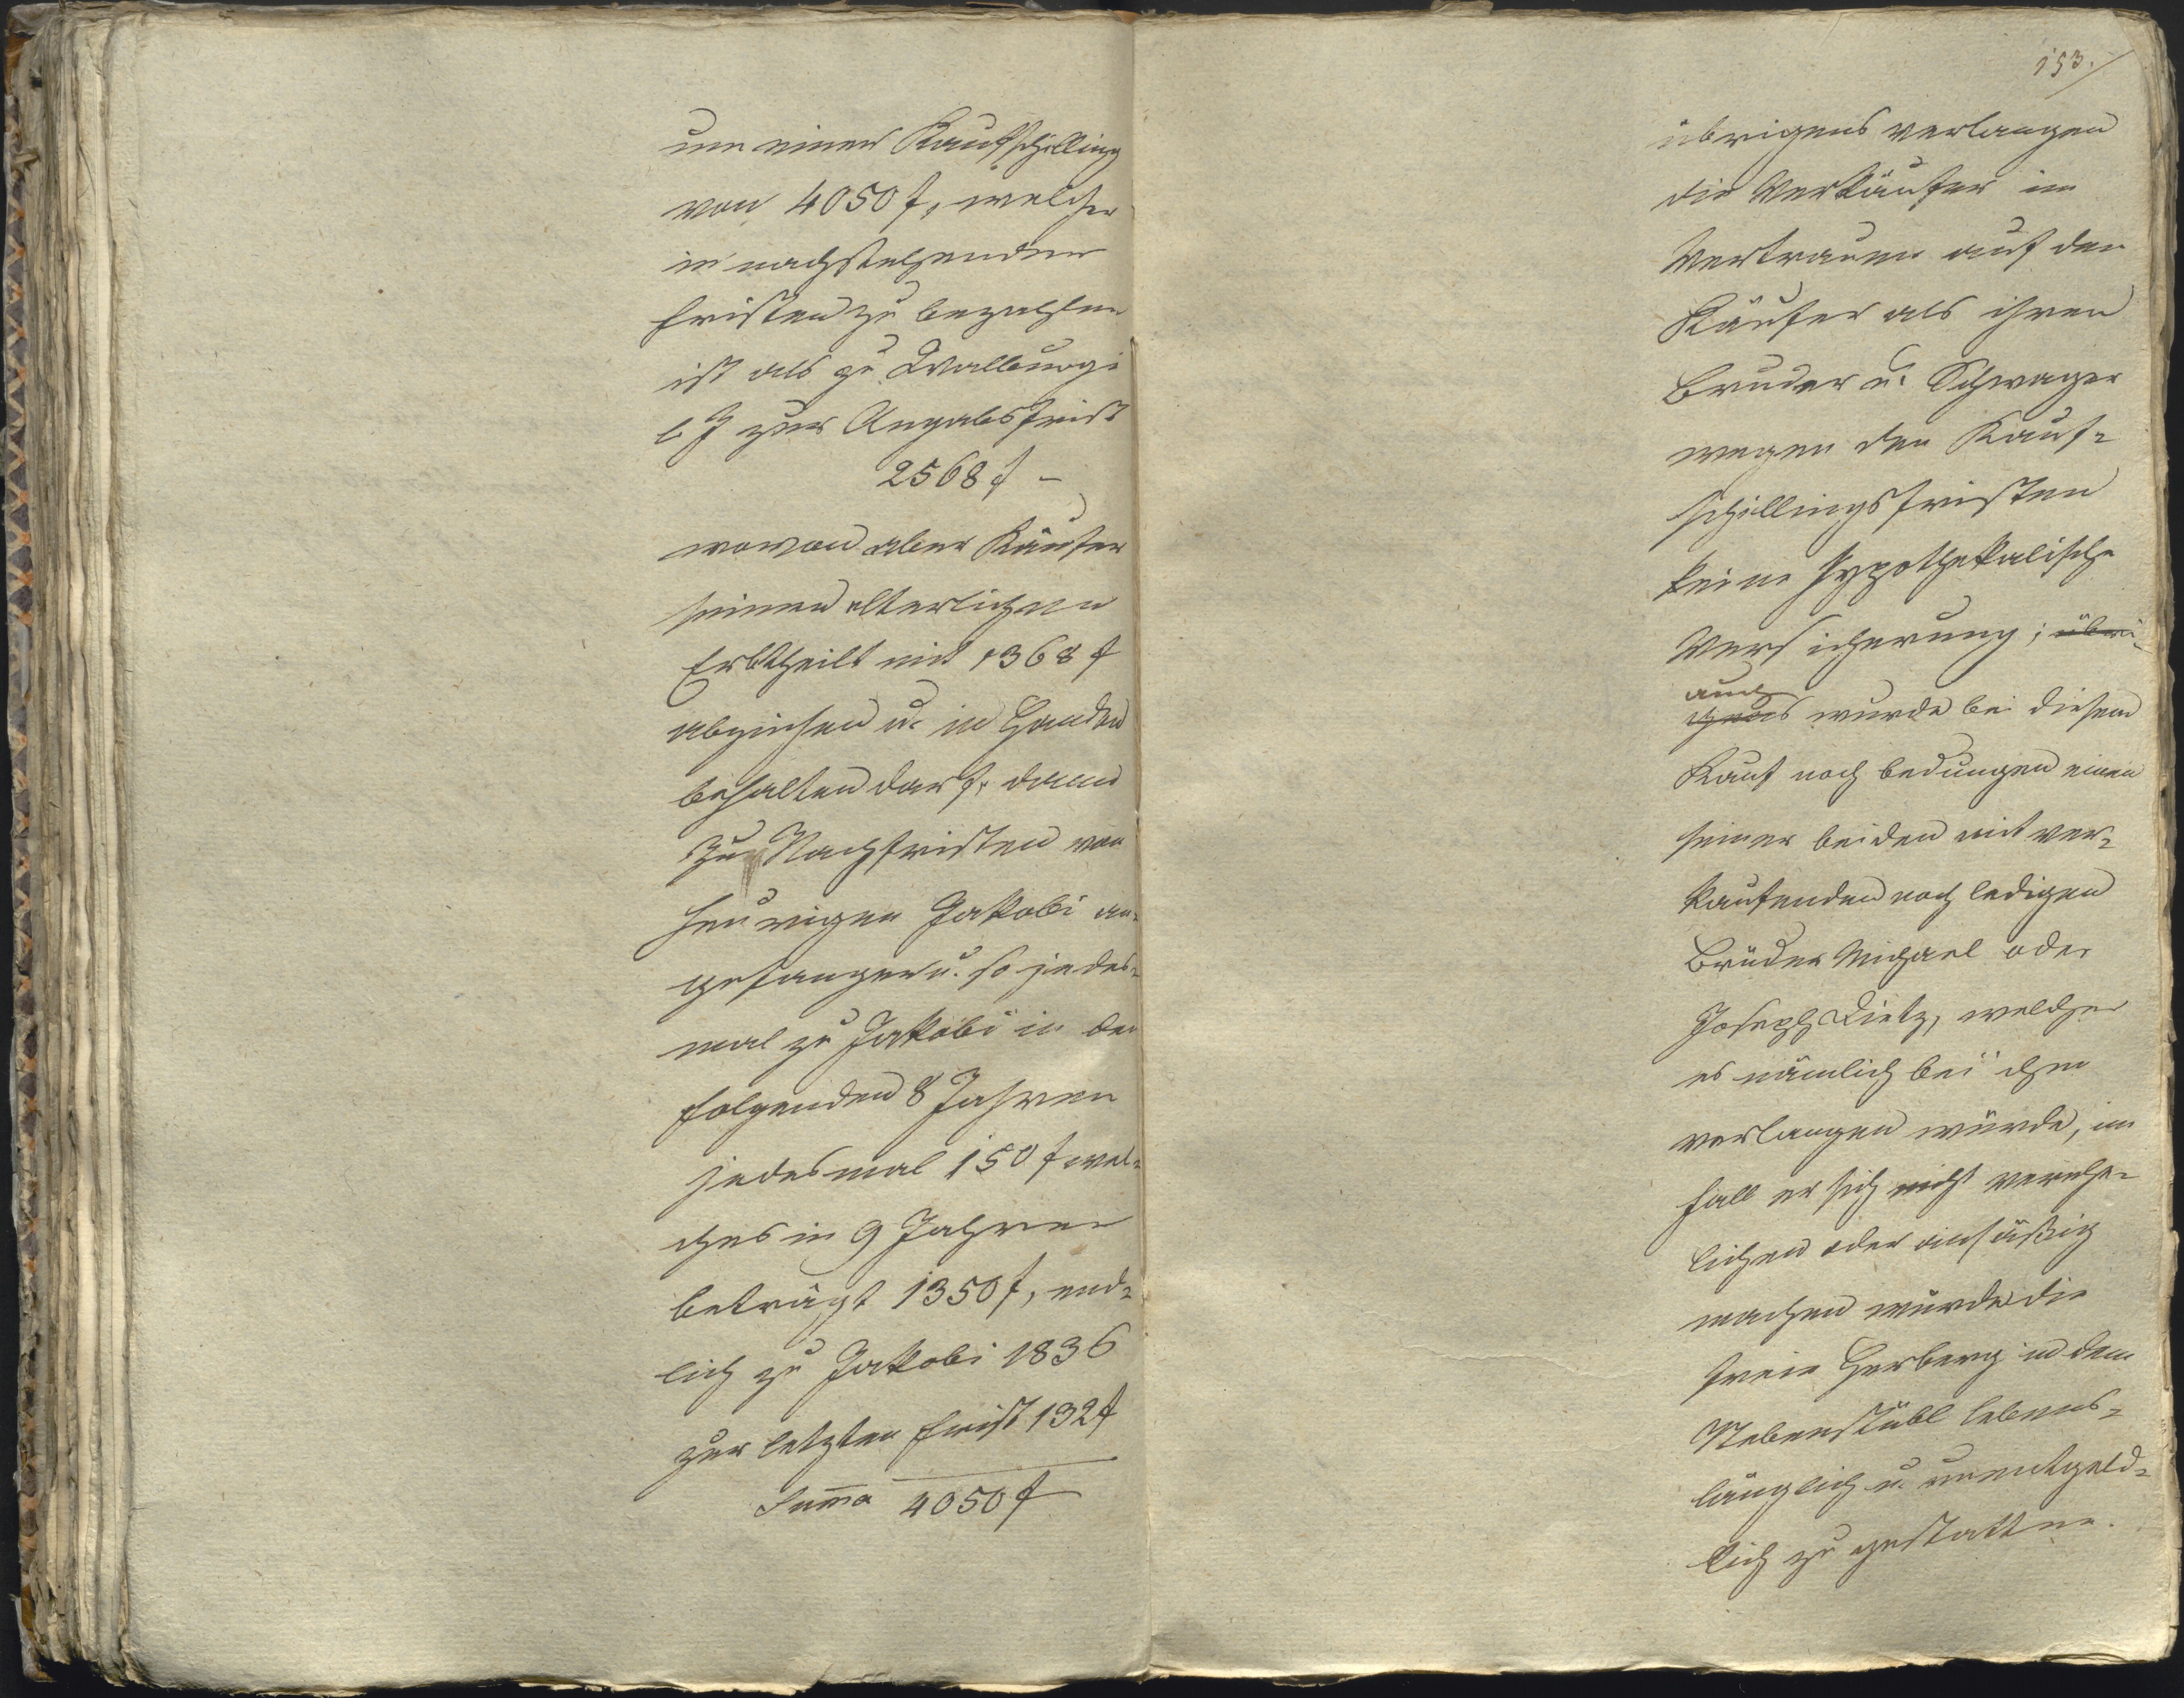 um einen Kaufschilling
von 4050 f, welcher
in nachstehenden
Fristen zu bezahlen
ist als zu Walburgi
l J zur Angabsfrist
2568 f –
wovon aber Käufer
seinen elterlichen
Erbtheilt mit 1368 f
abziehen u. in Handen
behalten darf, dann
zu Nachfristen von
heurigen Jakobi an-
gefangen u. so jedes-
mal zu Jakobi in den
folgenden 8 Jahren
jedesmal 150 f wel-
ches in 9 Jahren
beträgt 1350 f, end-
lich zu Jakobi 1836
zur letzten Frist 132 f
Suma 4050 f
153.
übrigens verlangen
die Verkäufer im
Vertrauen auf den
Käufer als ihren
Bruder u. Schwager
wegen den Kauf-
schillingsfristen
keine hypothekalische
Versicherung; übri-
auch
gens wurde bei diesem
Kauf noch bedungen einen
seiner beiden mit ver-
kaufenden noch ledigen
Brüder Michael oder
Joseph Dietz, welcher
es nämlich bei ihm
verlangen würde, im
Fall er sich nicht verehe-
lichen oder ansäßig
machen würde die
freie Herberg in dem
Nebenstübl lebens-
länglich u. unentgeld-
lich zu gestatten.